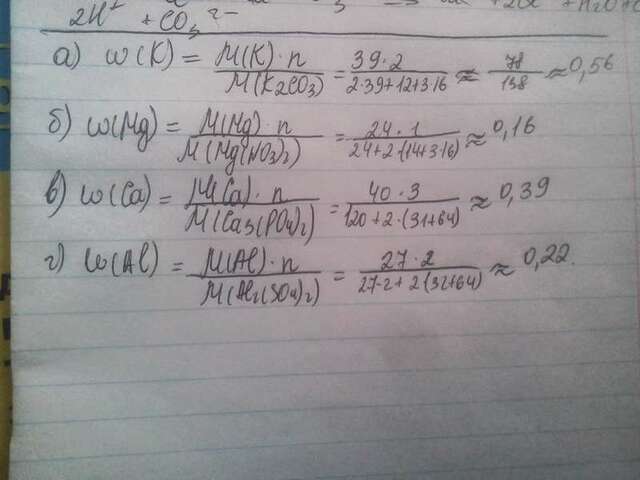 2H⁺ + CO₃²⁻ + H₂O
а) ω(K) = M(K)·n / M(K₂CO₃) = 39·2 / 2·39+12+3·16 ≈ 78 / 138 ≈ 0,56
б) ω(Mg) = M(Mg)·n / M(Mg(NO₃)₂) = 24·1 / 24+2·(14+3·16) ≈ 0,16
в) ω(Ca) = M(Ca)·n / M(Ca₃(PO₄)₂) = 40·3 / 120+2·(31+64) ≈ 0,39
г) ω(Al) = M(Al)·n / M(Al₂(SO₄)₂) = 27·2 / 27·2+2(32+64) ≈ 0,22.